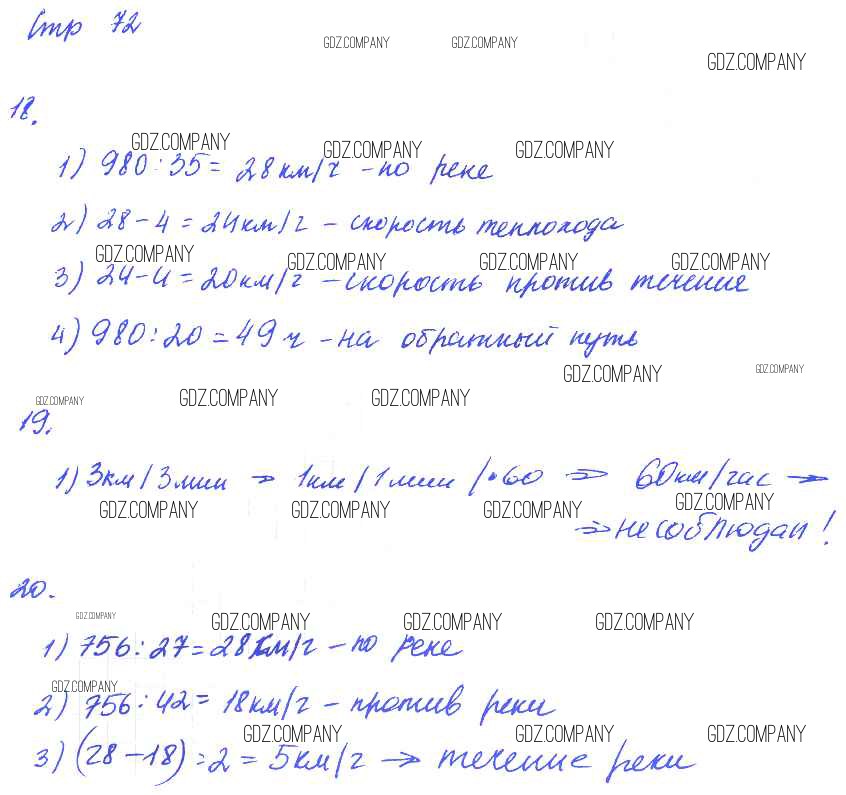 Стр 72
GDZ.COMPANY GDZ.COMPANY
GDZ.COMPANY
18.
GDZ.COMPANY GDZ.COMPANY GDZ.COMPANY
1) 980 : 35 = 28 км/ч - по реке
2) 28 - 4 = 24 км/ч - скорость теплохода
GDZ.COMPANY GDZ.COMPANY GDZ.COMPANY GDZ.COMPANY
3) 24 - 4 = 20 км/ч - скорость против течение
4) 980 : 20 = 49 ч - на обратный путь
GDZ.COMPANY GDZ.COMPANY
GDZ.COMPANY GDZ.COMPANY GDZ.COMPANY
19.
1) 3км/3мин ⇒ 1км/1мин /•60 ⇒ 60км/час ⇒
GDZ.COMPANY GDZ.COMPANY GDZ.COMPANY GDZ.COMPANY
⇒ не соблюдал!
20.
GDZ.COMPANY GDZ.COMPANY GDZ.COMPANY GDZ.COMPANY
1) 756 : 27 = 28 км/ч - по реке
GDZ.COMPANY
2) 756 : 42 = 18 км/ч - против реки
GDZ.COMPANY GDZ.COMPANY GDZ.COMPANY
3) (28 - 18) : 2 = 5 км/ч → течение реки